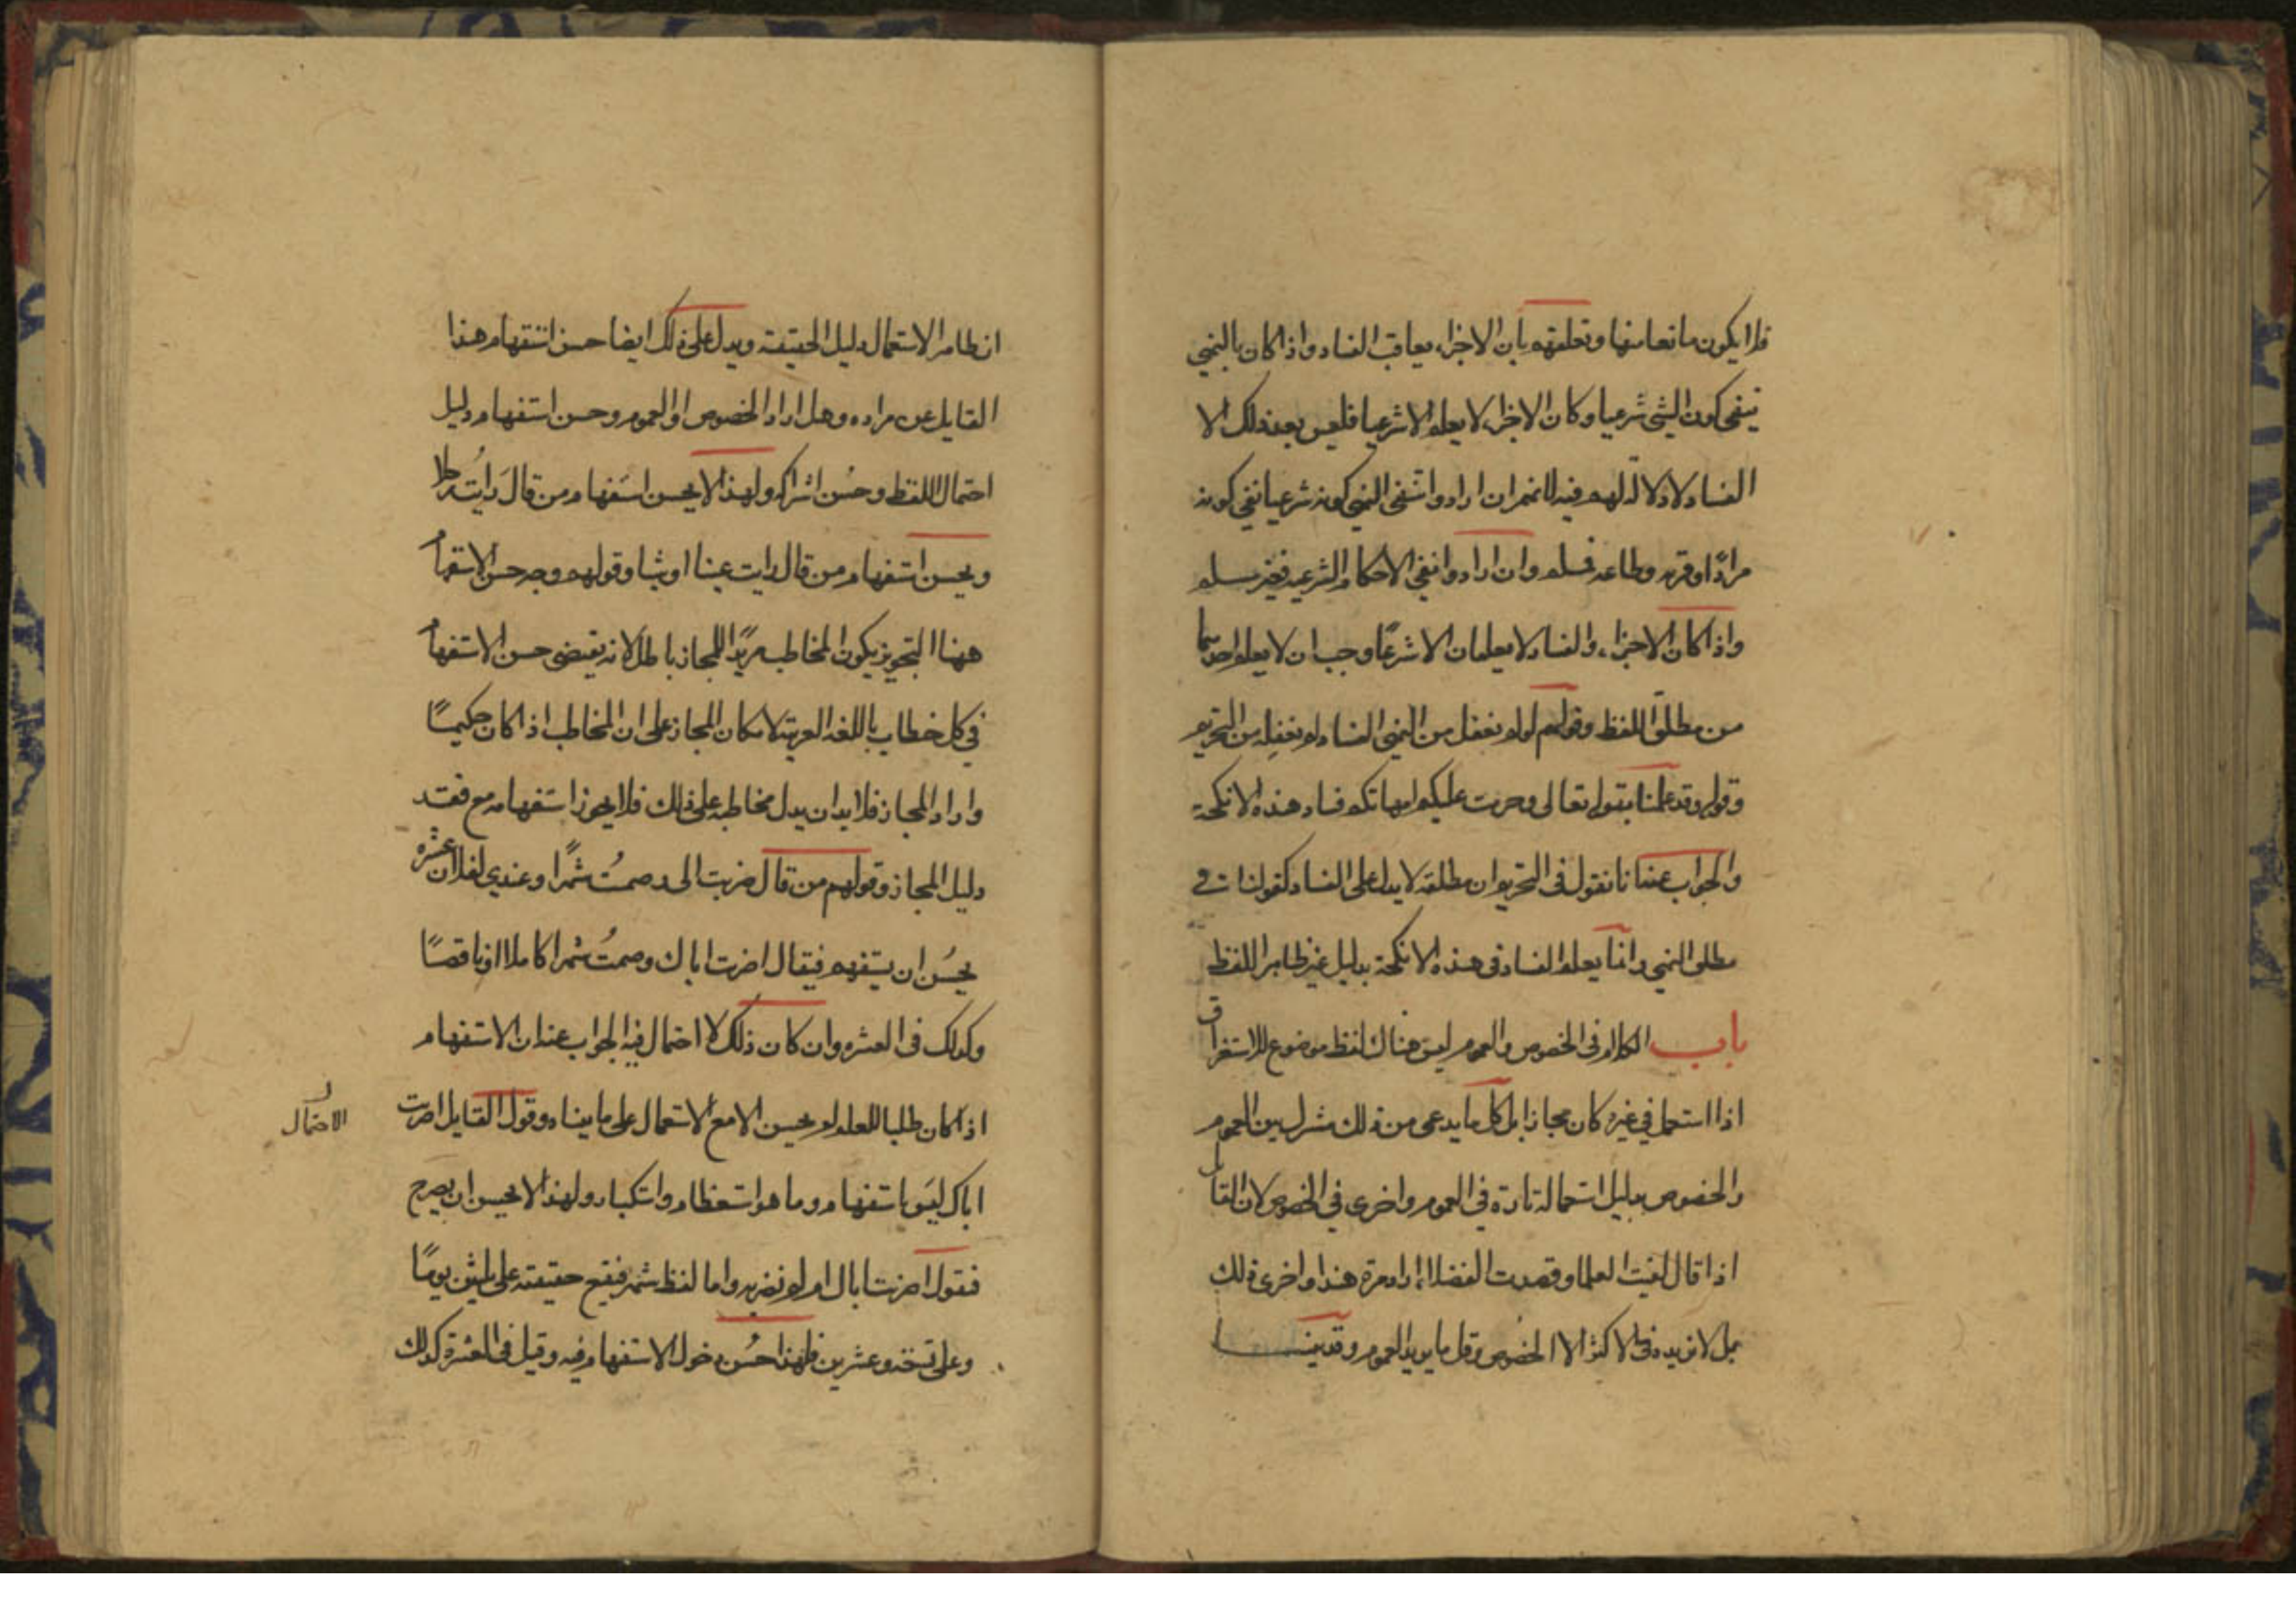 فلا يكون مانعا منها وتعلقهم بان الاجزاء يعاقب الفساد واذا كان بالنهي
ينفي كون الشي شرعيا وكان الاجزاء لا يعلم الا شرعيا فليس بعد ذلك الا
الفساد لا دلالة لهم فيه لانهم ان ارادوا انتفى بالنهي كونه شرعيا نفي كونه
مرادًا وقربه وطاعه فمسلم وان ارادوا نفي الاحكام الشرعيه فغير مسلم
واذا كان الاجزاء والفساد لا يعلمان الا شرعًا وجب ان لا يعلم احدهما
من مطلق اللفظ وقولهم لو لم نعقل من النهي الفساد لم نعقله من التحريم
وقولهم وقد علمنا بقوله تعالى وحرمت عليكم امهاتكم فساد هذه الانكحة
والجواب عنه انا نقول في التحريم ان مطلقه لا يدل على الفساد كقولنا في
مطلق النهي وانما يعلم الفساد في هذه الانكحة بدليل غير ظاهر اللفظ
باب الكلام في الخصوص والعموم ليس هناك لفظ موضوع للاستغراق
اذا استعمل في غيره كان مجازا بل كل ما يدعى من ذلك مشترك بين العموم
والخصوص بدليل استعماله تارة في العموم واخرى في الخصوص لان القائل
اذا قال لقيت العلما وقصدت الفضلا اراد مرة هذا واخرى ذلك
بل لا نريد في الاكثر الا الخصوص وقل ما يريد العموم وقد بينا
انظاهر الاستعمال دليل الحقيقة ويدل على ذلك ايضا حسن استفهام هذا
القايل عن مراده وهل اراد الخصوص او العموم وحسن استفهام دليل
احتمال اللفظ وحُسن اشتراكه ولهذا لا يحسن استفهام من قال رايتُ رجلا
ويحسن استفهام من قال رايت عينا او شيا وقولهم وجه حسن الاستفهام
ههنا التجويز يكون المخاطب مريدًا للمجاز باطل لانه يقتضي حسن الاستفهام
في كل خطاب باللغه العربية لامكان المجاز على ان المخاطب اذا كان حكيمًا
واراد المجاز فلا بد ان يدل مخاطبه على ذلك فلا يجوز استفهامه مع فقد
دليل المجاز وقولهم من قال ضربت ابي وصمتُ شهرًا وعندي لفلان عشره
يحسُن ان يستفهم فيقال اضربت اباك وصمتُ شهرا كاملا او ناقصًا
وكذلك في العشره وان كان ذلك لا احتمال فيه الجواب عنه ان الاستفهام
اذا كان طلبا للعلم لم يحسن الا مع الاستعمال على ما بيناه وقول القايل اضربت
الاحتمال
اباك ليس باستفهام وما هو استعظام واستكبار ولهذا لا يحسن ان يصرح
فيقول اضربت اباك ام لم تضربه واما لفظ شهر فيقع حقيقته على ثلثين يومًا
وعلى تسعة وعشرين فلهذا حسُن دخول الاستفهام فيه وقيل في العشرة كذلك